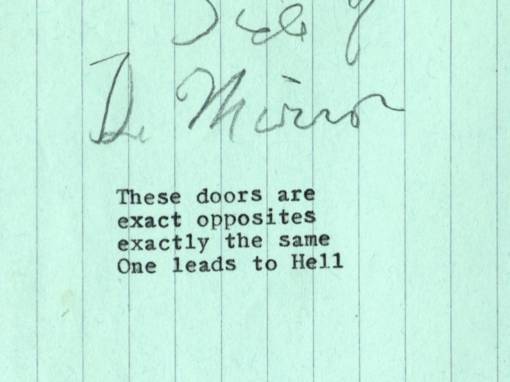 Side of
The Mirror
These doors are
exact opposites
exactly the same
One leads to Hell